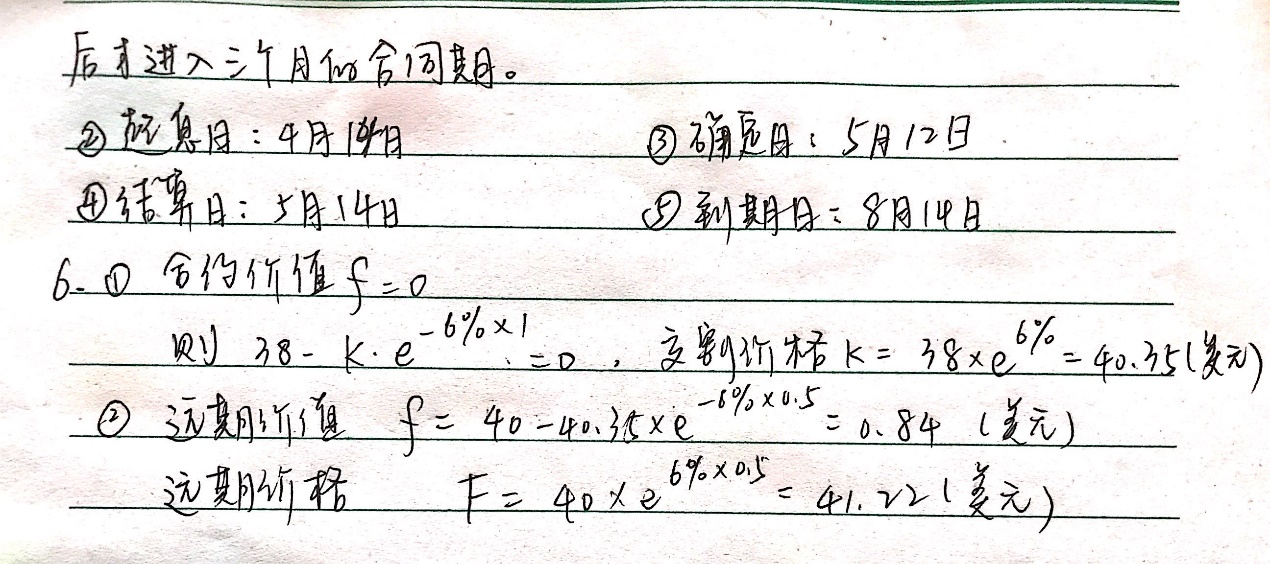 后才进入三个月的合同期。
②起息日：4月14日 ③确定日：5月12日
④结算日：5月14日 ⑤到期日：8月14日
6. ① 合约价值 f=0
则 38-K·e^{-6%×1}=0，交割价格K=38×e^{6%}=40.35(美元)
② 远期价值 f=40-40.35×e^{-6%×0.5}=0.84(美元)
远期价格 F=40×e^{6%×0.5}=41.22(美元)